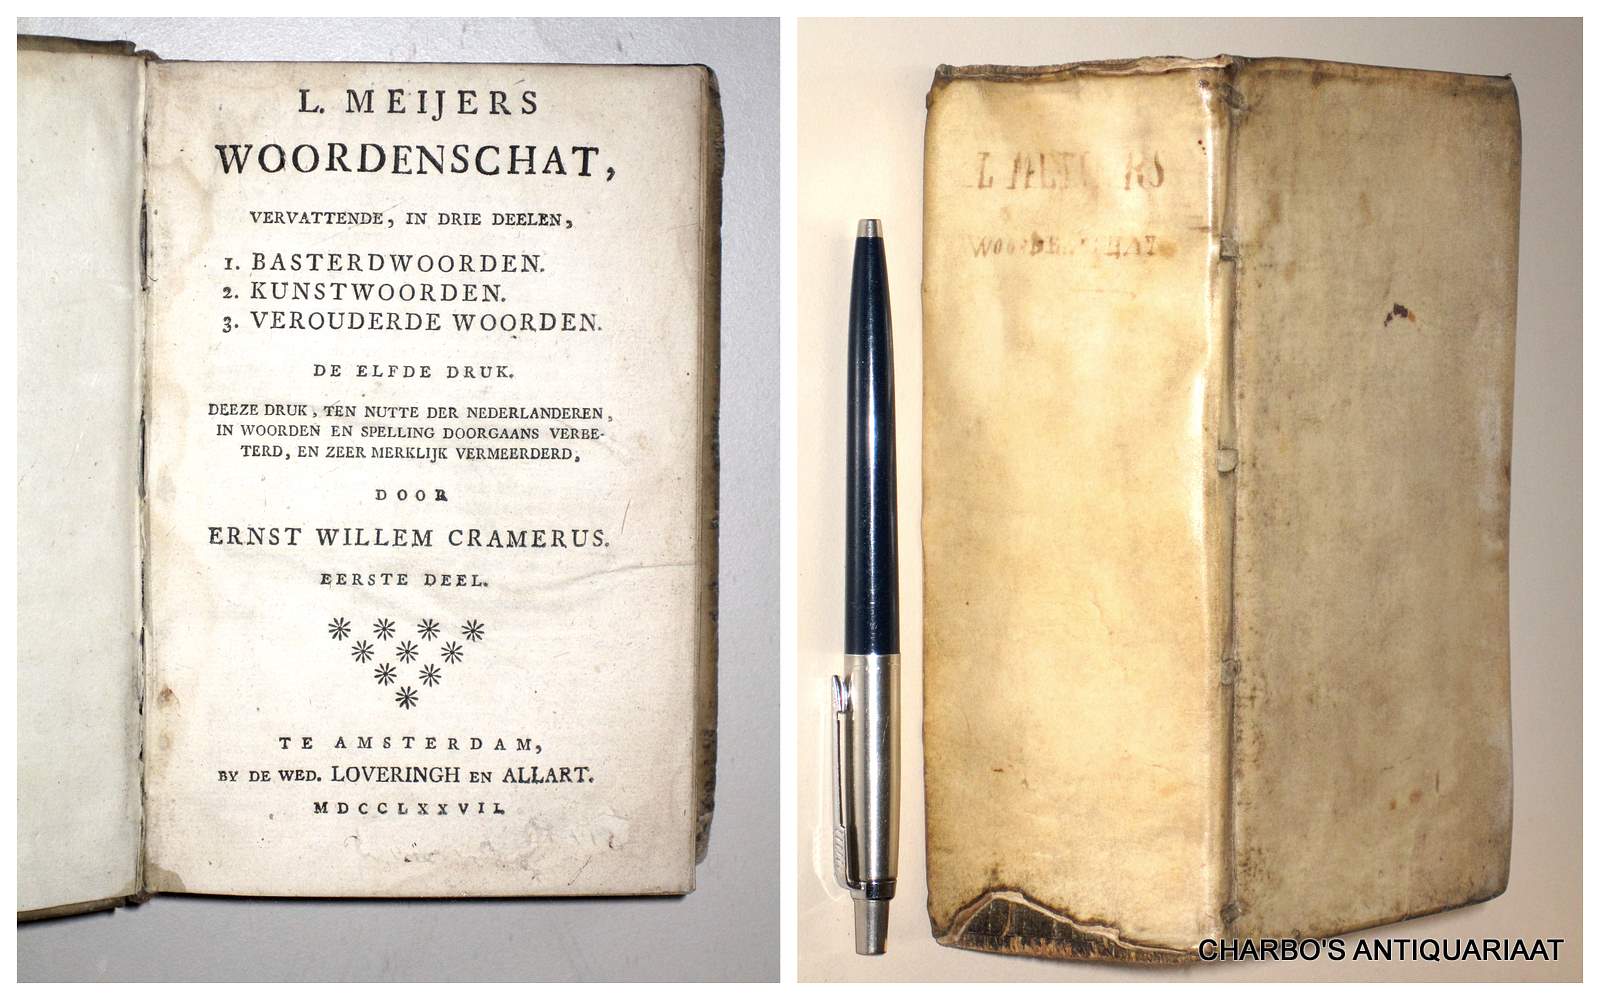 L. MEIJERS
WOORDENSCHAT,
VERVATTENDE, IN DRIE DEELEN,
1. BASTERDWOORDEN.
2. KUNSTWOORDEN.
3. VEROUDERDE WOORDEN.
DE ELFDE DRUK.
DEEZE DRUK, TEN NUTTE DER NEDERLANDEREN,
IN WOORDEN EN SPELLING DOORGAANS VERBE-
TERD, EN ZEER MERKLIJK VERMEERDERD,
DOOR
ERNST WILLEM CRAMERUS.
EERSTE DEEL.
TE AMSTERDAM,
BY DE WED. LOVERINGH EN ALLART.
MDCCLXXVII.
L
CHARBO'S ANTIQUARIAAT